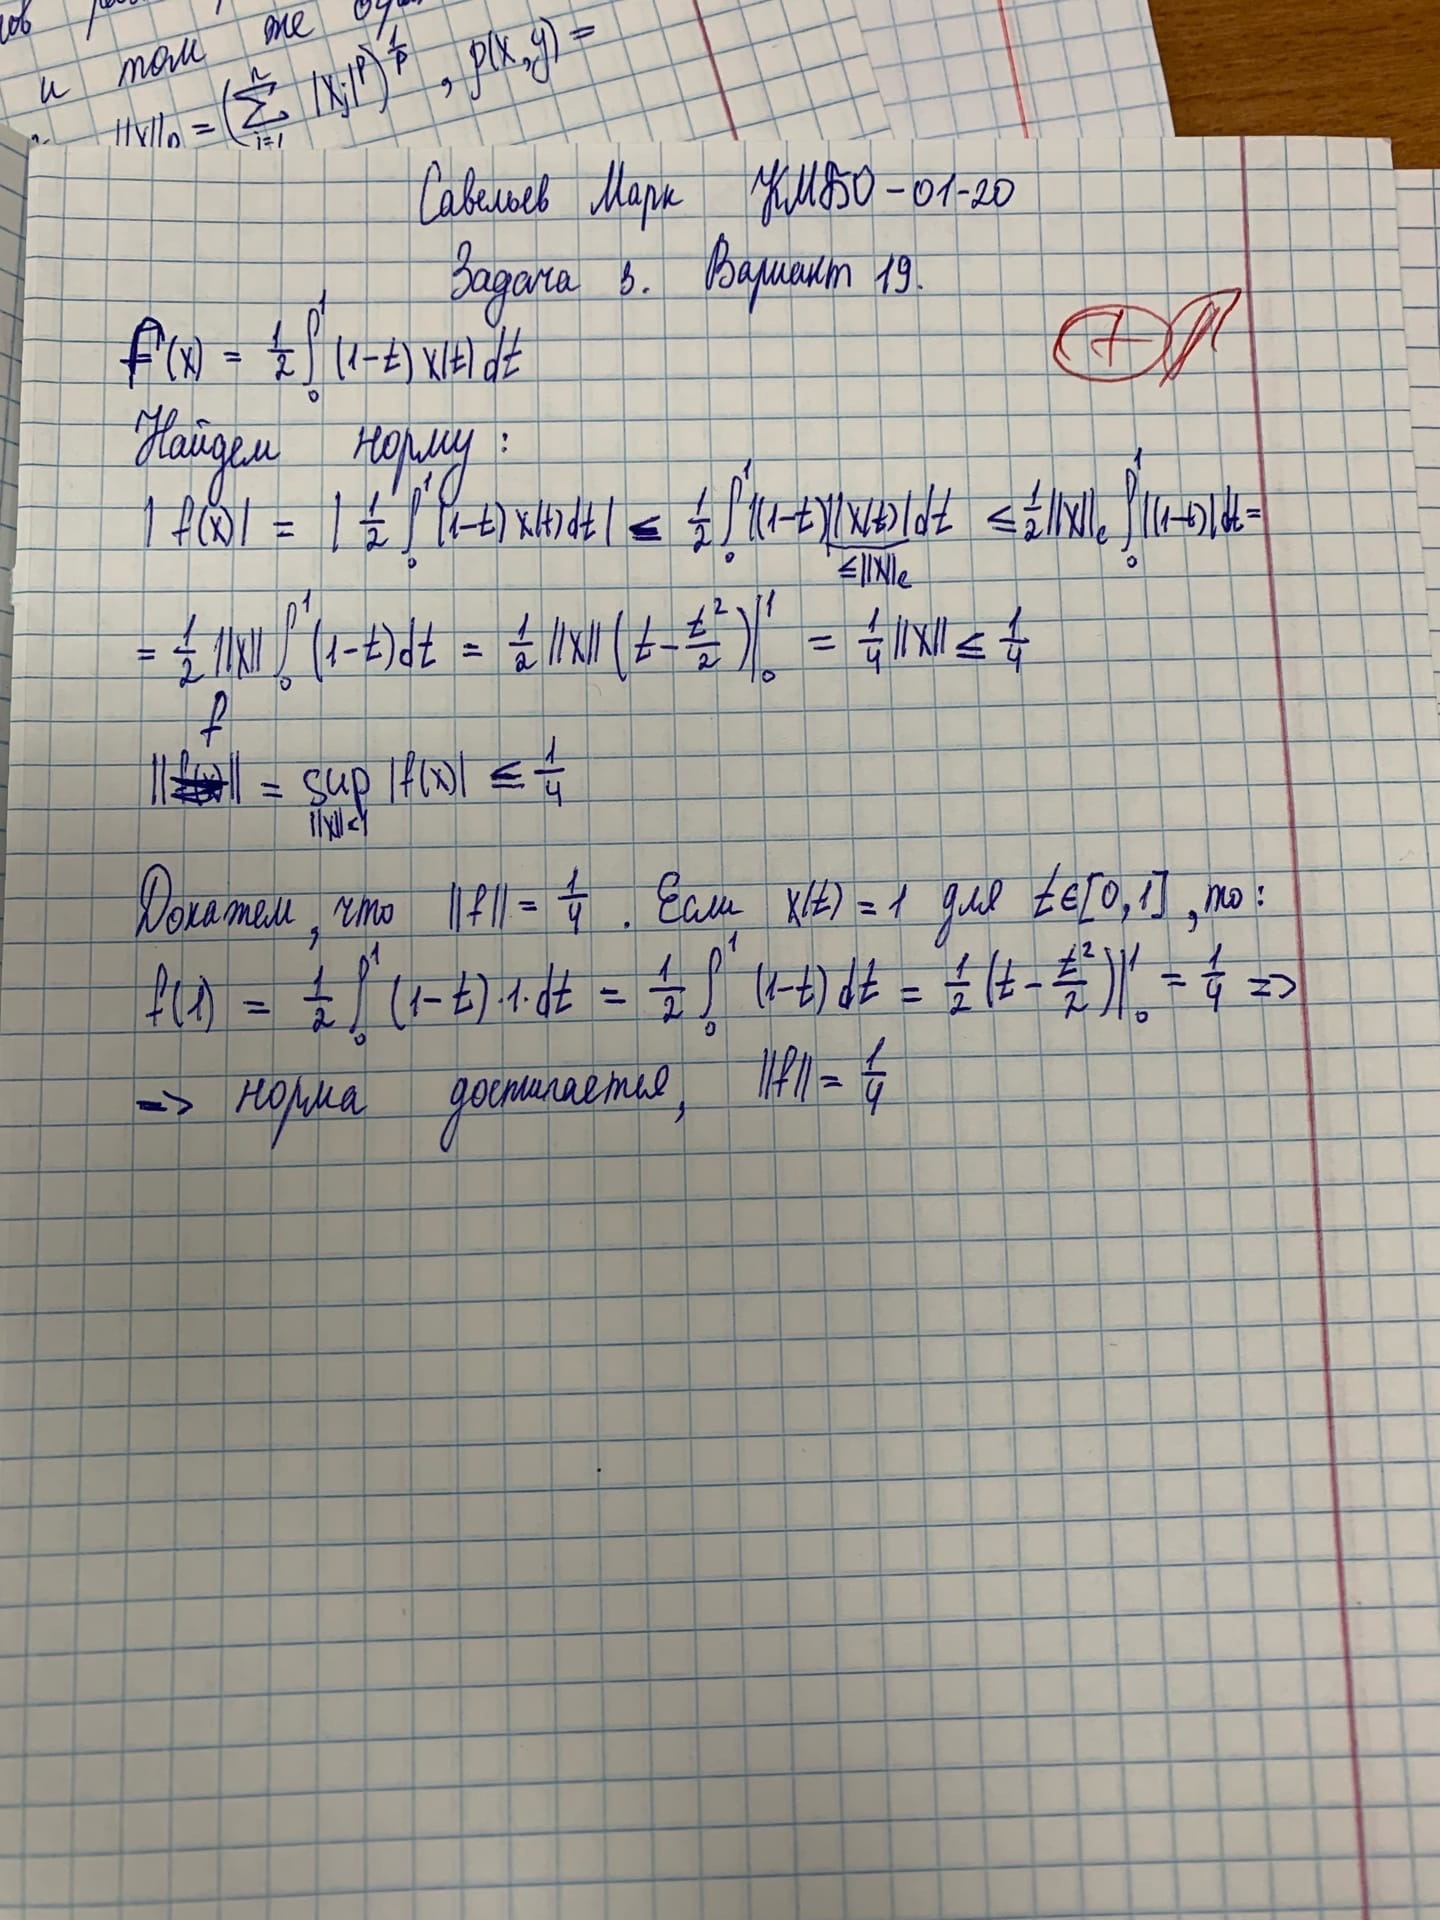 и том же
||x||p = (∑ⁿᵢ₌₁ |xj|^p)^(1/p), ρ(x,y) =
Савельев Марк КМБО-01-20
Задача 3. Вариант 19.
+
f(x) = 1/2 ∫₀¹ (1-t) x(t) dt
Найдем норму:
|f(x)| = |1/2 ∫₀¹ (1-t) x(t) dt| ≤ 1/2 ∫₀¹ |(1-t)||x(t)| dt ≤ 1/2 ||x||c ∫₀¹ |(1-t)| dt =
≤||x||c
= 1/2 ||x|| ∫₀¹ (1-t) dt = 1/2 ||x|| (t - t²/2)|₀¹ = 1/4 ||x|| ≤ 1/4
||f|| = sup |f(x)| ≤ 1/4
||x||<1
Докажем, что ||f|| = 1/4. Если x(t) = 1 для t∈[0,1], то:
f(1) = 1/2 ∫₀¹ (1-t)·1·dt = 1/2 ∫₀¹ (1-t) dt = 1/2 (t - t²/2)|₀¹ = 1/4 =>
=> норма достигается, ||f|| = 1/4